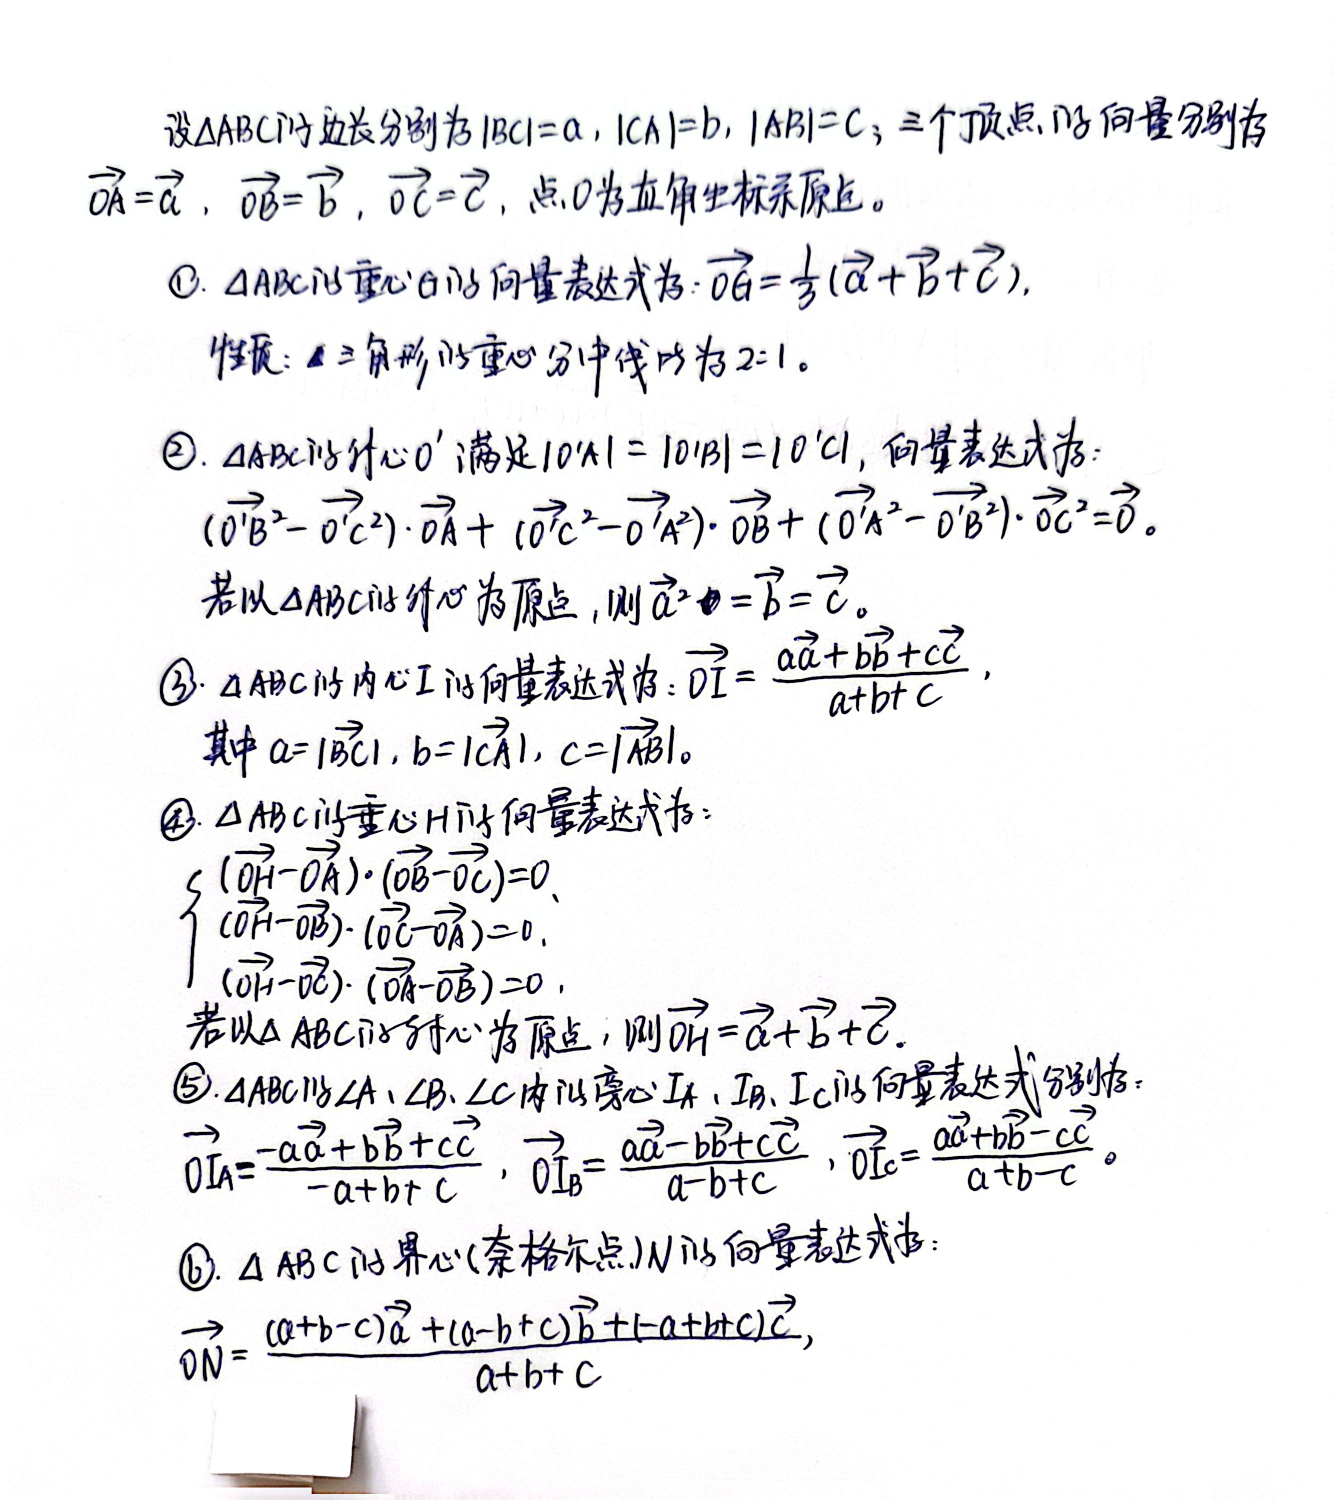 设△ABC的边长分别为|BC|=a,|CA|=b,|AB|=c;三个顶点的向量分别为
$\overrightarrow{OA}=\vec{a}$,$\overrightarrow{OB}=\vec{b}$,$\overrightarrow{OC}=\vec{c}$,点O为直角坐标系原点。
①.△ABC的重心G的向量表达式为:$\overrightarrow{OG}=\frac{1}{3}(\vec{a}+\vec{b}+\vec{c})$,
性质:三角形的重心分中线比为2:1。
②.△ABC的外心O'满足|O'A|=|O'B|=|O'C|,向量表达式为:
$(\overrightarrow{O'B}^2-\overrightarrow{O'C}^2)\cdot\overrightarrow{OA}+(\overrightarrow{O'C}^2-\overrightarrow{O'A}^2)\cdot\overrightarrow{OB}+(\overrightarrow{O'A}^2-\overrightarrow{O'B}^2)\cdot\overrightarrow{OC}^2=\vec{0}$。
若以△ABC的外心为原点,则$\vec{a}^2=\vec{b}=\vec{c}$。
③.△ABC的内心I的向量表达式为:$\overrightarrow{OI}=\frac{a\vec{a}+b\vec{b}+c\vec{c}}{a+b+c}$,
其中$a=|\overrightarrow{BC}|$,$b=|\overrightarrow{CA}|$,$c=|\overrightarrow{AB}|$。
④.△ABC的垂心H的向量表达式为:
$(\overrightarrow{OH}-\overrightarrow{OA})\cdot(\overrightarrow{OB}-\overrightarrow{OC})=0$、
$(\overrightarrow{OH}-\overrightarrow{OB})\cdot(\overrightarrow{OC}-\overrightarrow{OA})=0$,
$(\overrightarrow{OH}-\overrightarrow{OC})\cdot(\overrightarrow{OA}-\overrightarrow{OB})=0$,
若以△ABC的外心为原点,则$\overrightarrow{OH}=\vec{a}+\vec{b}+\vec{c}$.
⑤.△ABC的∠A、∠B、∠C内的旁心$I_A$、$I_B$、$I_C$的向量表达式分别为:
$\overrightarrow{OI_A}=\frac{-a\vec{a}+b\vec{b}+c\vec{c}}{-a+b+c}$,$\overrightarrow{OI_B}=\frac{a\vec{a}-b\vec{b}+c\vec{c}}{a-b+c}$,$\overrightarrow{OI_C}=\frac{a\vec{a}+b\vec{b}-c\vec{c}}{a+b-c}$。
⑥.△ABC的界心(奈格尔点)N的向量表达式为:
$\overrightarrow{ON}=\frac{(a+b-c)\vec{a}+(a-b+c)\vec{b}+(-a+b+c)\vec{c}}{a+b+c}$,